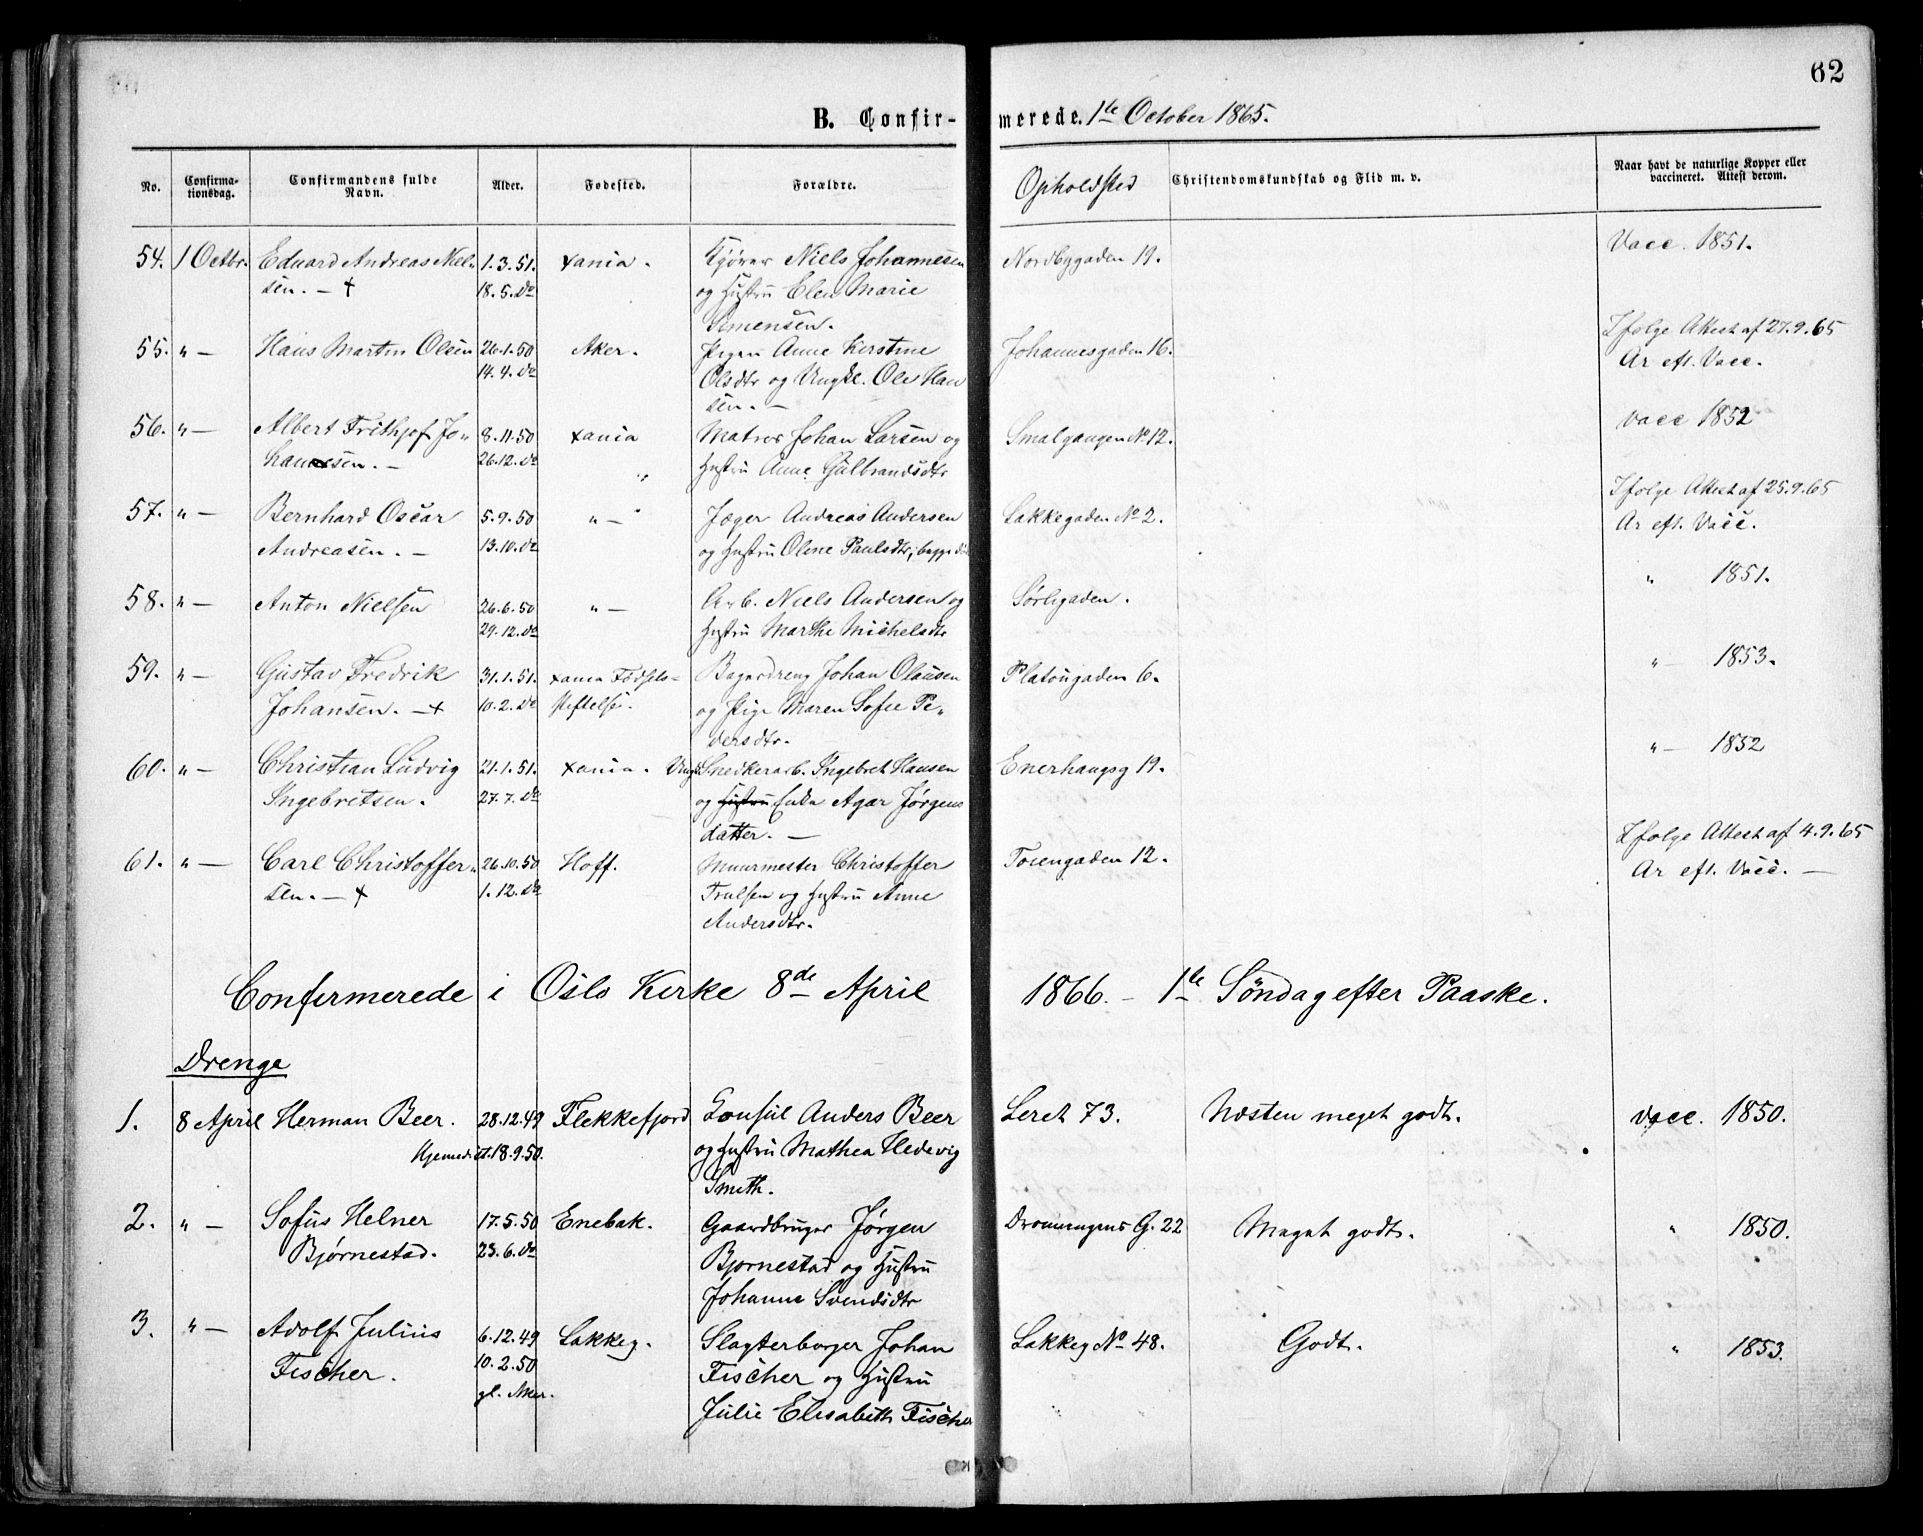 62
B. Confirmerede. 1ste October 1865.
No. Confirmationsdag. Confirmandens fulde Navn. Alder. Fødested. Forældre. Opholdsted Christendomskundskab og Flid m. v. Naar havt de naturlige Kopper eller vaccineret. Attest derom.
54. 1 Octbr. Eduard Andreas Niel- 1.3.51. Xania. Niels Johannesen Nordbygaden 19. Vacc. 1851.
sen. — + 18.5. do og Hustru Elen Marie
Simensen.
55. " — Hans Martin Olsen 26.1.50 Aker. Pigen Anne Kirstine Johannesgaden 16. Ifølge Attest af 27.9.65
14.4. do Olsdtr og Ungkl. Ole Han Ar eft. Vacc.
sen. —
56. " — Albert Frithjof Jo„ 8.11.50 Xania Matros Johan Larsen og Smalgangen No 12. vacc 1852
hansen. — 26.12. do Hustru Anne Gulbrandsdtr
57. " — Bernhard Oscar 5.9.50 " — Jæger Andreas Andersen Lakkegaden No 2. Ifølge Attest af 25.9.65
Andreasen. — 13.10. do og Hustru Oline Paulsdtr, begge Ar eft. Vacc.
58. " — Anton Nielsen 26.6.50 " — Arb. Niels Andersen og Sørligaden. " 1851.
29.12. do Hustru Marthe Michelsdtr
59. " — Gustav Fredrik 31.1.51. Xania Fødsels- Bagerdreng Johan Olausen Platougaden 6. " — 1853.
Johansen. — + 10.2. do stiftelse. og Pige Maren Sofie Pe„
dersdtr.
60. " — Christian Ludvig 21.1.51. Xania. Ungk. Snedkerarb. Ingebret Hansen Enerhaugsg 19. " — 1852
Ingebretsen. 27.7. do og Hustru Enke Agar Jørgens
datter. —
61. " — Carl Christoffer„ 26.10.50 Hoff. Muurmester Christoffer Toiengaden 12. Ifølge Attest af 4.9.65
sen. — + 1.12. do Trulsen og Hustru Anne Ar eft. Vacc. —
Andersdtr.
Confirmerede i Oslo Kirke 8de April 1866. — 1ste Söndag efter Paaske.
Drenge
1. 8 April Herman Beer. 28.12.49 Flekkefjord Consul Anders Beer Leret 73. Næsten meget godt. vacc. 1850.
Hjemmedøbt 18.9.50. og Hustru Mathea Hedevig
Smith.
2. " — Sofus Helner 17.5.50 Enebak. Gaardbruger Jørgen Dronningens G. 22 Meget godt. " 1850.
Bjørnestad. 23.6. do Bjørnestad og Hustru
Johanne Svendsdtr
3. " — Adolf Julius 6.12.49 Lakkeg. Slagterborger Johan Lakkeg No 48. Godt. " 1853.
Fischer. 10.2.50 Fischer og Hustru
gl. Aker. Julie Elisabeth Fischer